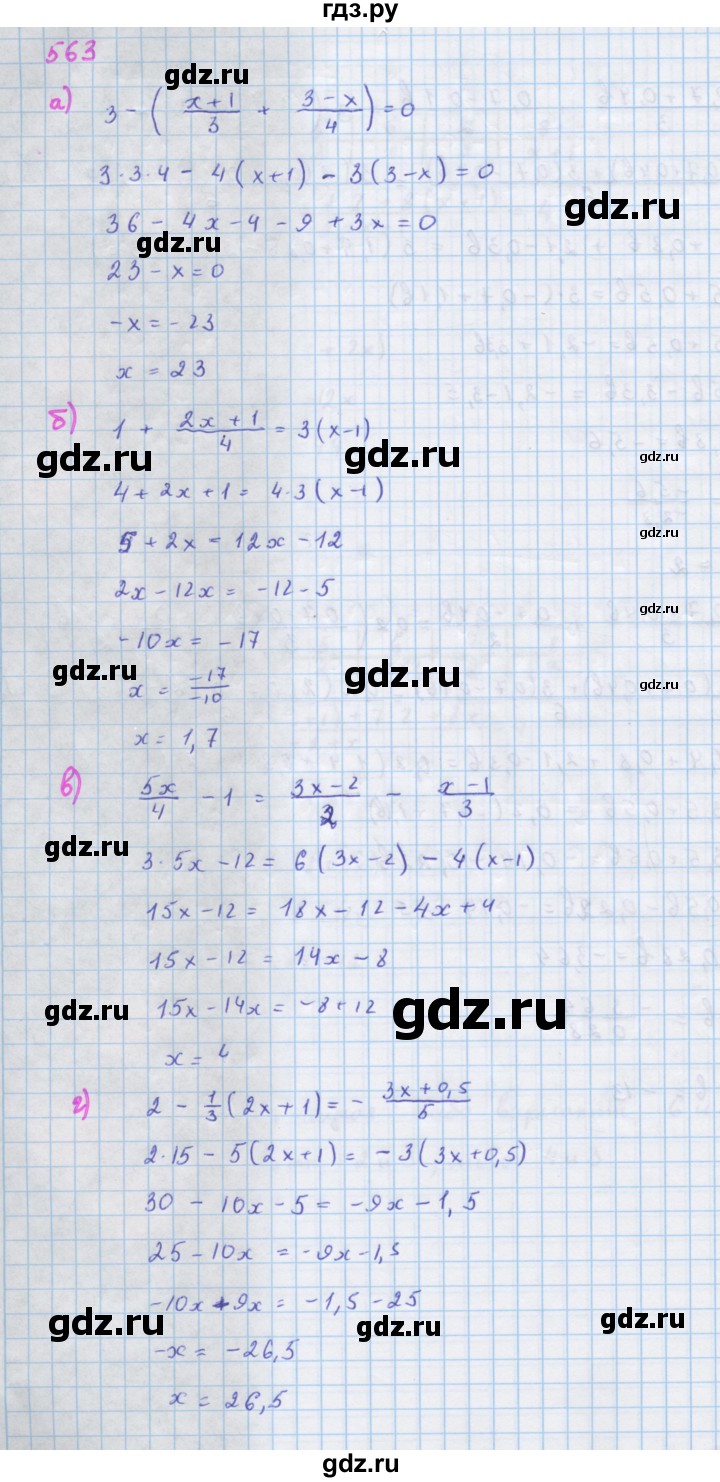 гдз.ру
563
gdz.ru
а) 3 - ( (x+1)/3 + (3-x)/4 ) = 0
3·3·4 - 4(x+1) - 3(3-x) = 0
gdz.ru
36 - 4x - 4 - 9 + 3x = 0
gdz.ru
23 - x = 0
-x = -23
x = 23
б) 1 + (2x+1)/4 = 3(x-1)
gdz.ru gdz.ru gdz.ru
4 + 2x + 1 = 4·3(x-1)
5 + 2x = 12x - 12
gdz.ru
2x - 12x = -12 - 5
gdz.ru
-10x = -17
gdz.ru gdz.ru gdz.ru
x = -17/-10
x = 1,7
в) 5x/4 - 1 = (3x-2)/2 - (x-1)/3
gdz.ru
3·5x - 12 = 6(3x-2) - 4(x-1)
15x - 12 = 18x - 12 - 4x + 4
15x - 12 = 14x - 8
gdz.ru gdz.ru
15x - 14x = -8 + 12
x = 4
г) 2 - 1/3(2x+1) = - (3x+0,5)/5
2·15 - 5(2x+1) = -3(3x+0,5)
30 - 10x - 5 = -9x - 1,5
25 - 10x = -9x - 1,5
-10x + 9x = -1,5 - 25
gdz.ru gdz.ru gdz.ru
-x = -26,5
x = 26,5
gdz.ru